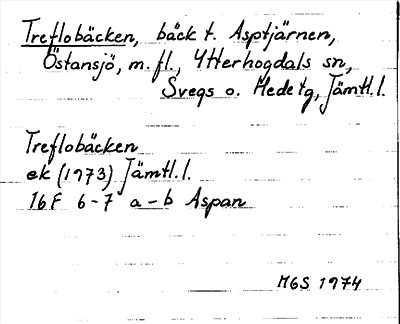 Treflobäcken, bäck t. Asptjärnen,
Östansjö, m. fl., Ytterhogdals sn,
Svegs o. Hede tg, Jämtl. l.
Treflobäcken
ek (1973) Jämtl. l.
16F 6-7 a-b Aspan
MGS 1974